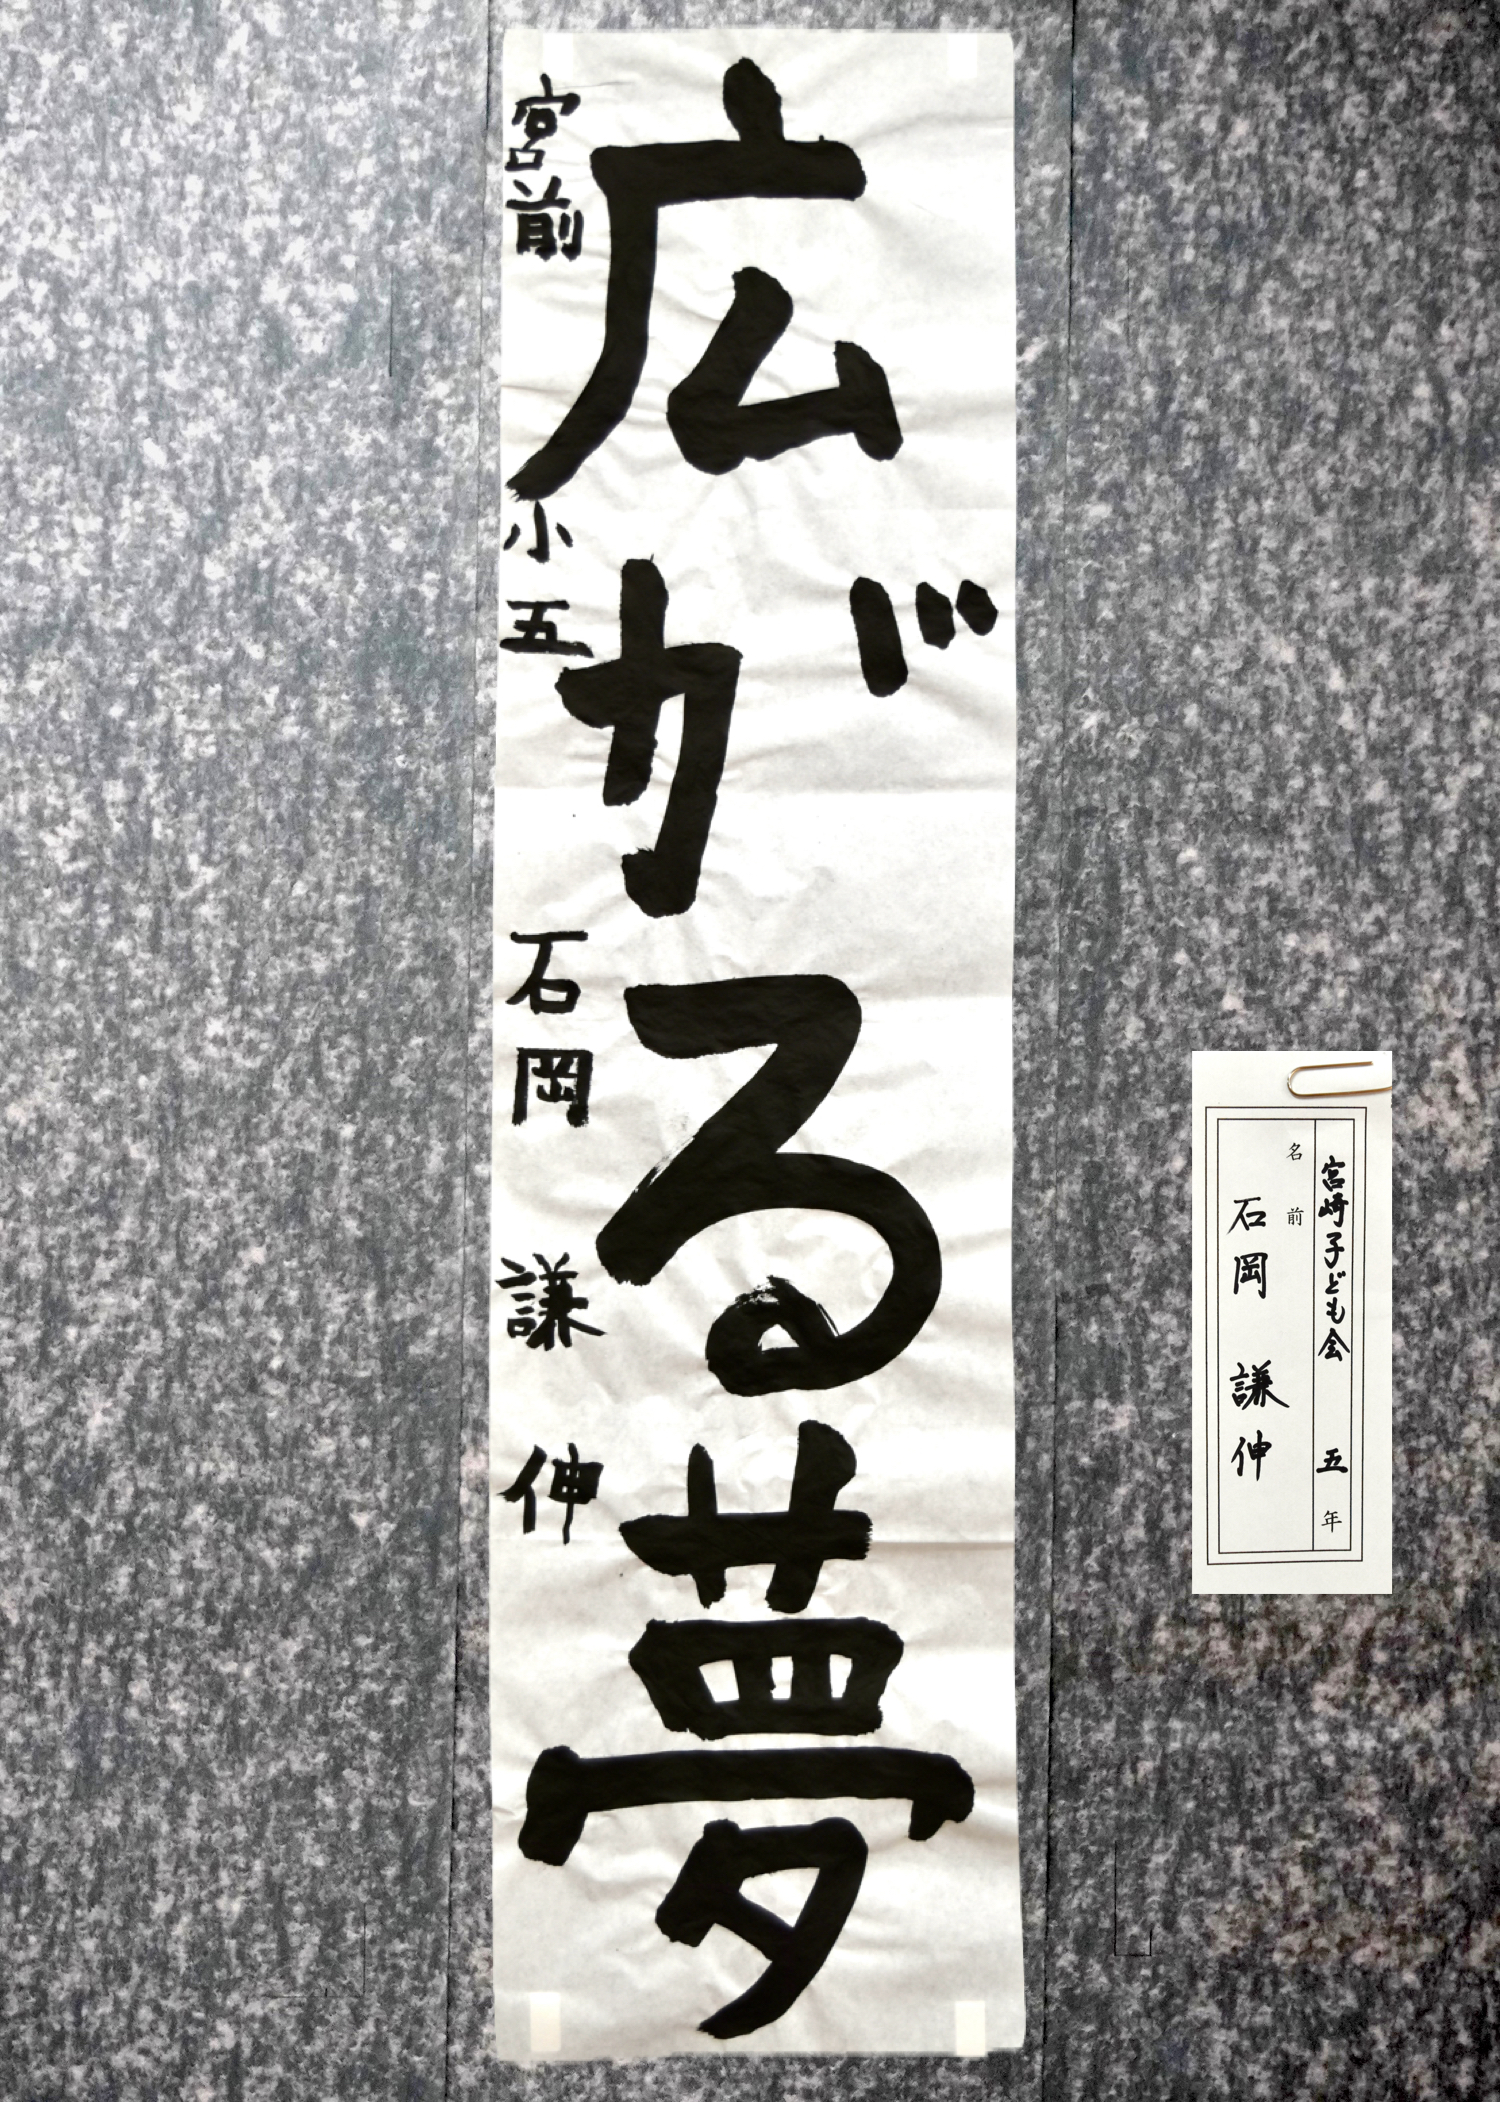 広がる夢
宮前小五 石岡 謙伸
宮崎子ども会 五年
名前
石岡 謙伸